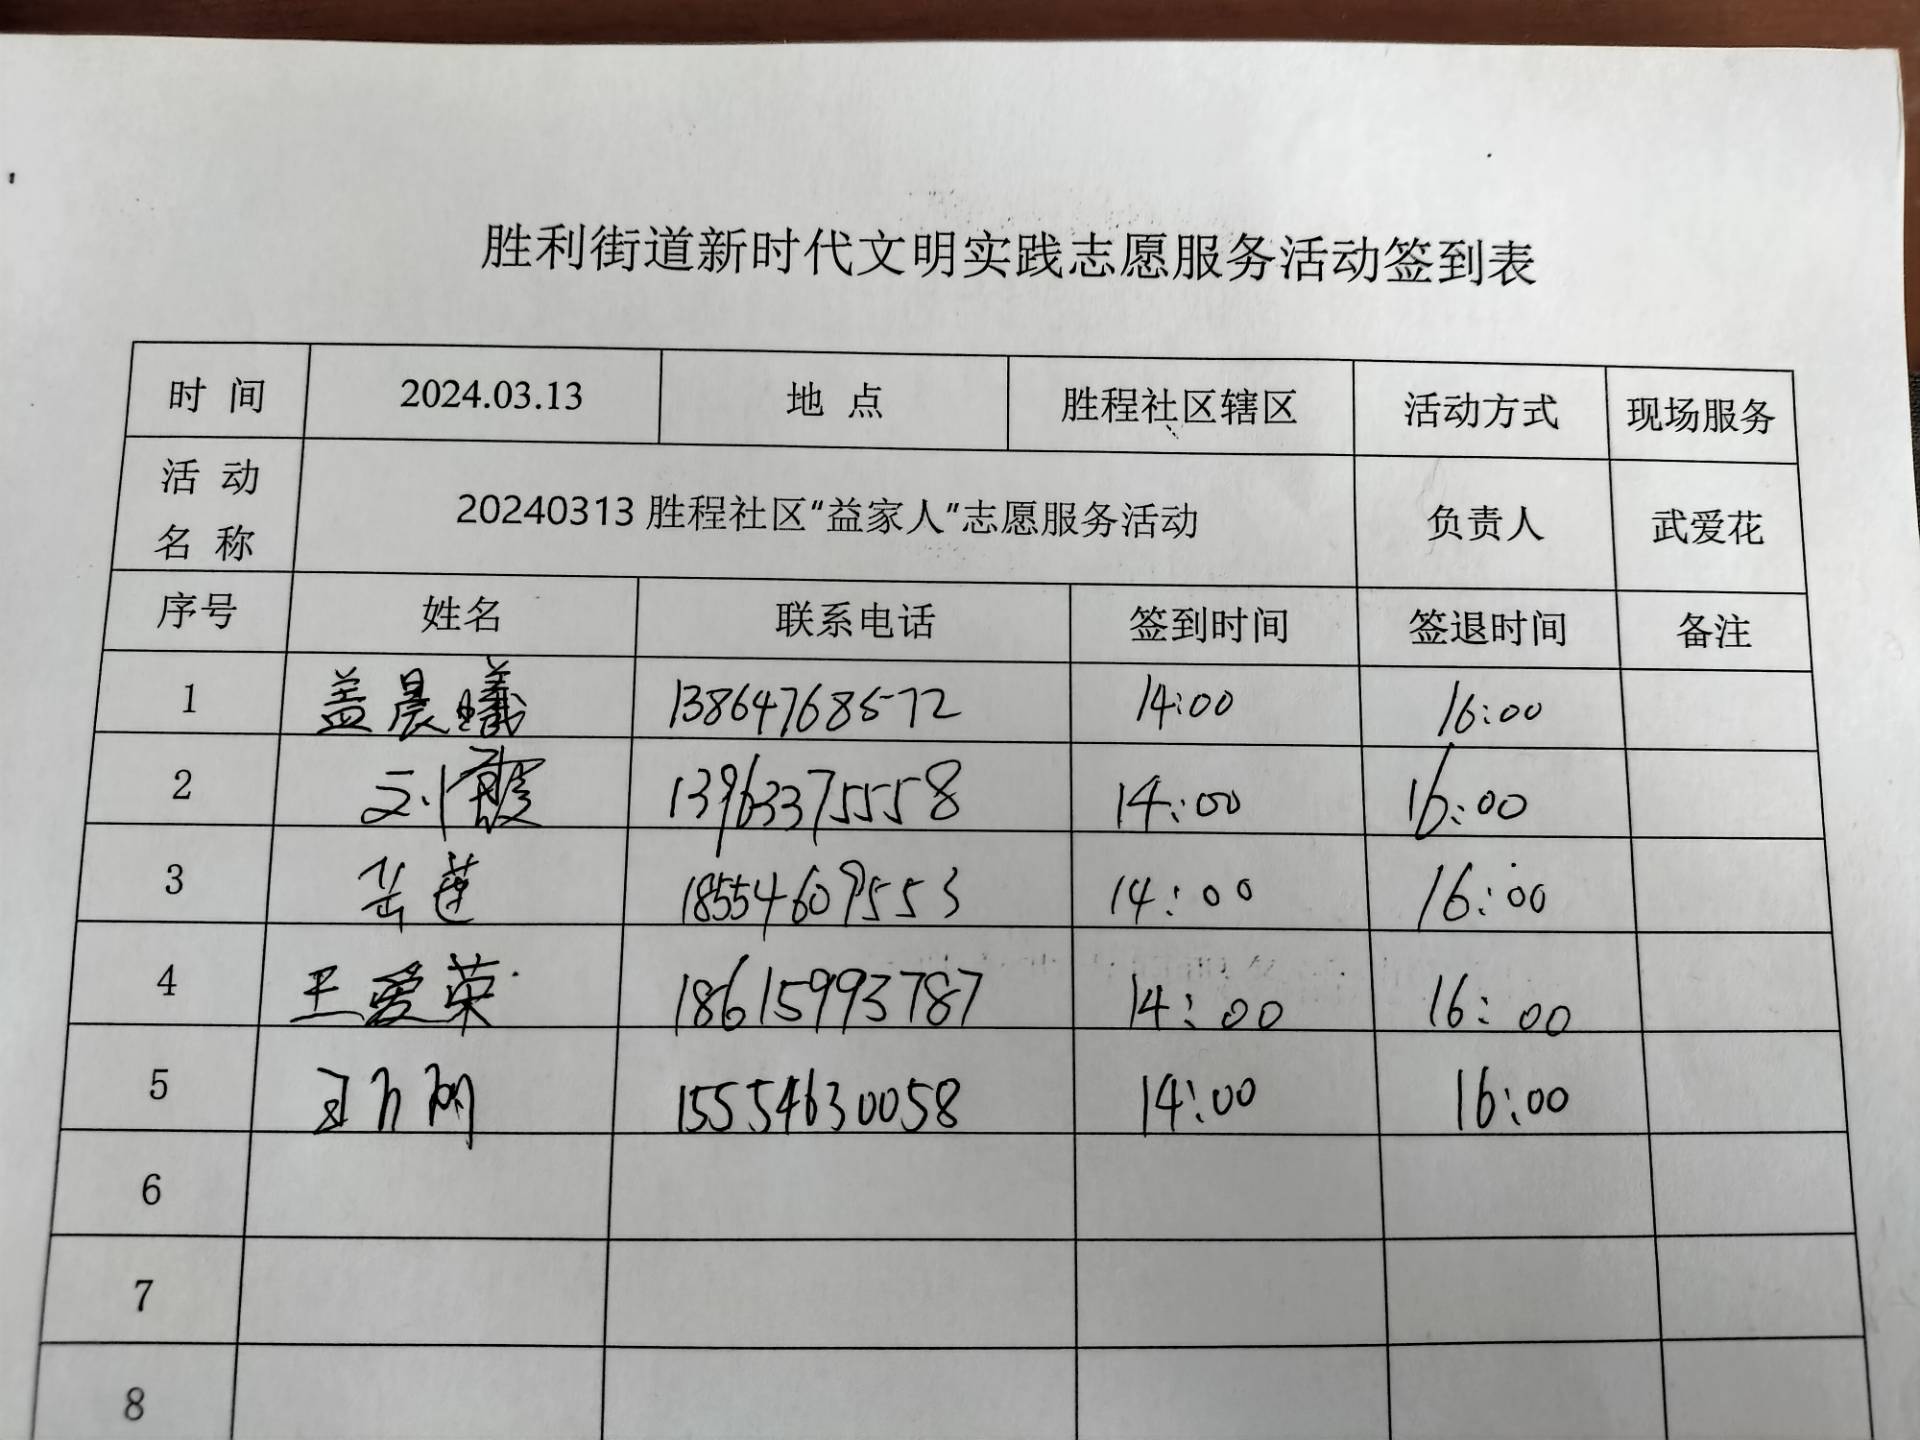 胜利街道新时代文明实践志愿服务活动签到表
时 间 2024.03.13 地 点 胜程社区辖区 活动方式 现场服务
活 动
名 称 20240313胜程社区“益家人”志愿服务活动 负责人 武爱花
序号 姓名 联系电话 签到时间 签退时间 备注
1 盖晨曦 13864768572 14:00 16:00
2 刘霞 13963375558 14:00 16:00
3 岳莲 18554609553 14:00 16:00
4 王爱荣 18615993787 14:00 16:00
5 15554630058 14:00 16:00
6
7
8